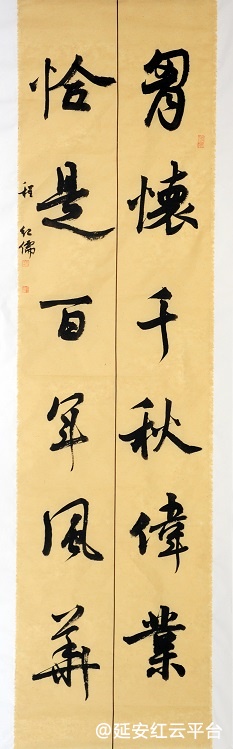 胷懷千秋偉業
恰是百年風華
程红儒
@延安红云平台